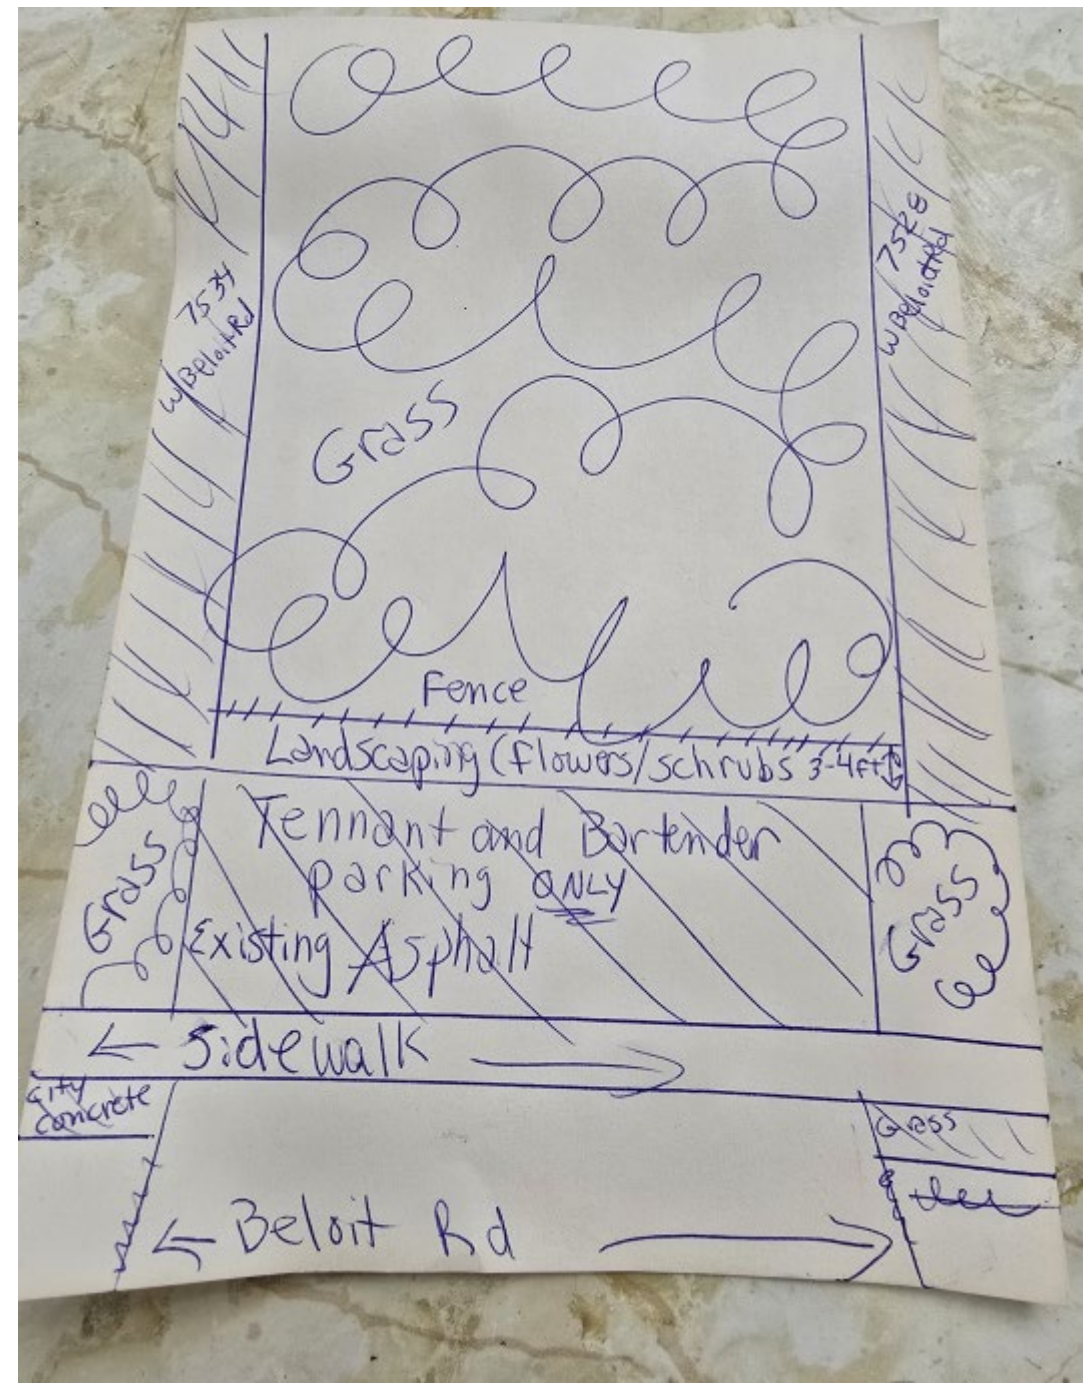 7534
W Beloit Rd
7528
W Beloit Rd
Grass
Fence
Landscaping (flowers/schrubs 3-4ft
Tennant and Bartender
parking ONLY
Existing Asphalt
Grass
Grass
← Sidewalk →
City
Concrete
Grass
← Beloit Rd →